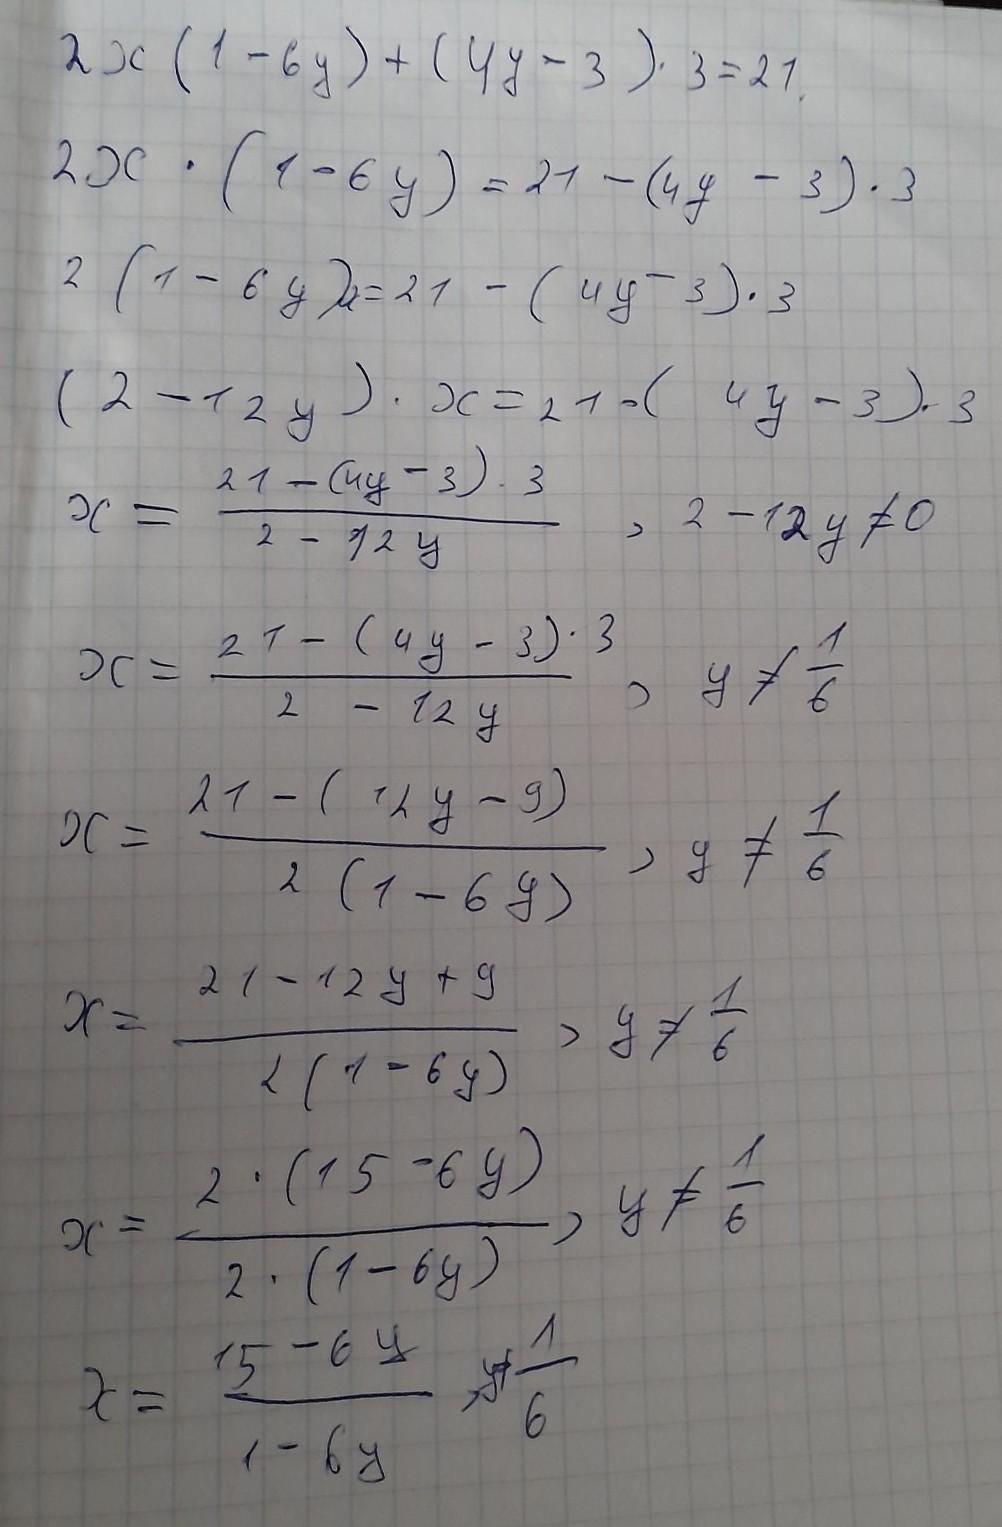 2x(1-6y)+(4y-3)·3=21.
2x·(1-6y)=21-(4y-3)·3
2(1-6y)x=21-(4y-3)·3
(2-12y)·x=21-(4y-3)·3
x=\frac{21-(4y-3)·3}{2-12y}, 2-12y≠0
x=\frac{21-(4y-3)·3}{2-12y}, y≠\frac{1}{6}
x=\frac{21-(12y-9)}{2(1-6y)}, y≠\frac{1}{6}
x=\frac{21-12y+9}{2(1-6y)}, y≠\frac{1}{6}
x=\frac{2·(15-6y)}{2·(1-6y)}, y≠\frac{1}{6}
x=\frac{15-6y}{1-6y}, y≠\frac{1}{6}